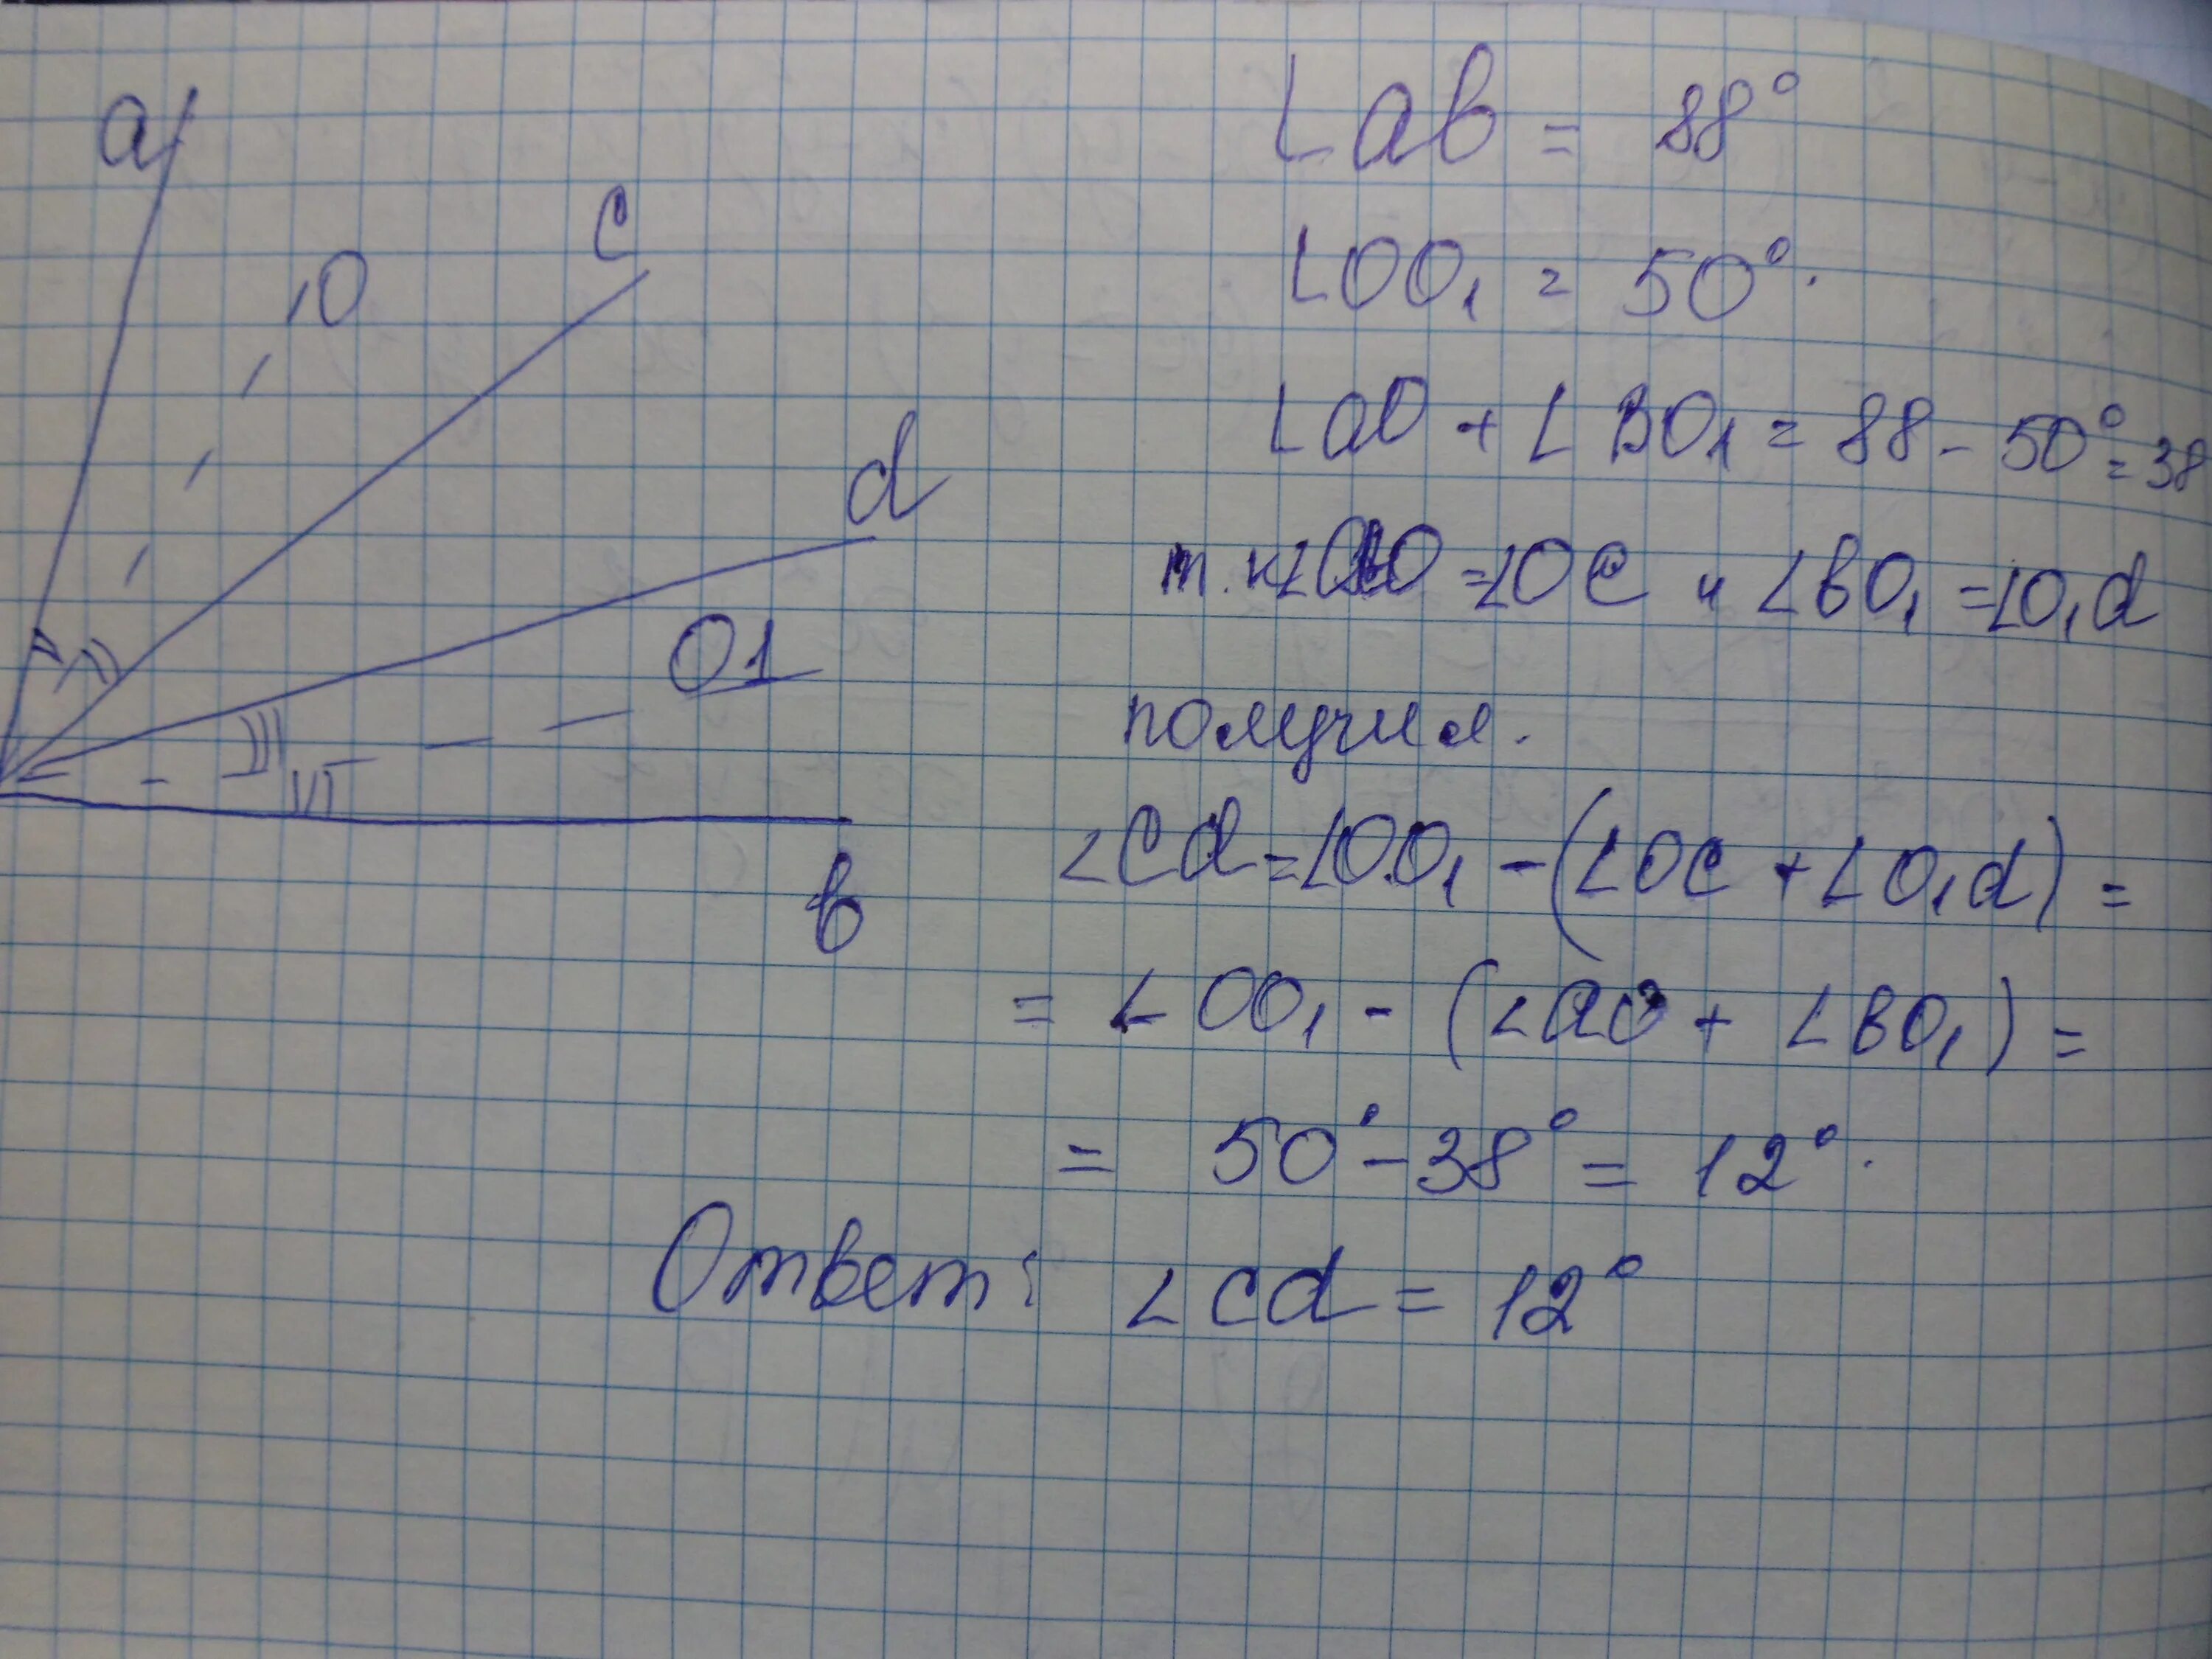 a
O
c
d
O1
b
∠ab = 88°
∠OO₁ = 50°.
∠aO + ∠BO₁ = 88 - 50° = 38
т.к ∠aO = ∠Oc и ∠bO₁ = ∠O₁d
получим.
∠cd = ∠OO₁ - (∠Oc + ∠O₁d) =
= ∠OO₁ - (∠aO + ∠BO₁) =
= 50° - 38° = 12°.
Ответ: ∠cd = 12°